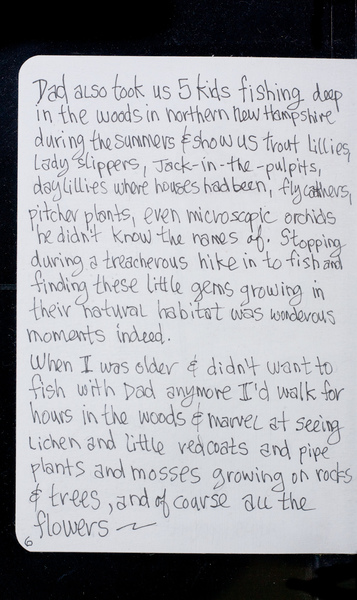 Dad also took us 5 kids fishing deep
in the woods in northern New Hampshire
during the summers & show us trout lillies,
Lady slippers, Jack-in-the-pulpits,
daylillies where houses had been, flycatchers,
pitcher plants, even microscopic orchids
he didn't know the names of. Stopping
during a treacherous hike in to fish and
finding these little gems growing in
their natural habitat was wonderous
moments indeed.
When I was older & didn't want to
fish with Dad anymore I'd walk for
hours in the woods & marvel at seeing
Lichen and little redcoats and pipe
plants and mosses growing on rocks
& trees, and of coarse all the
flowers
6